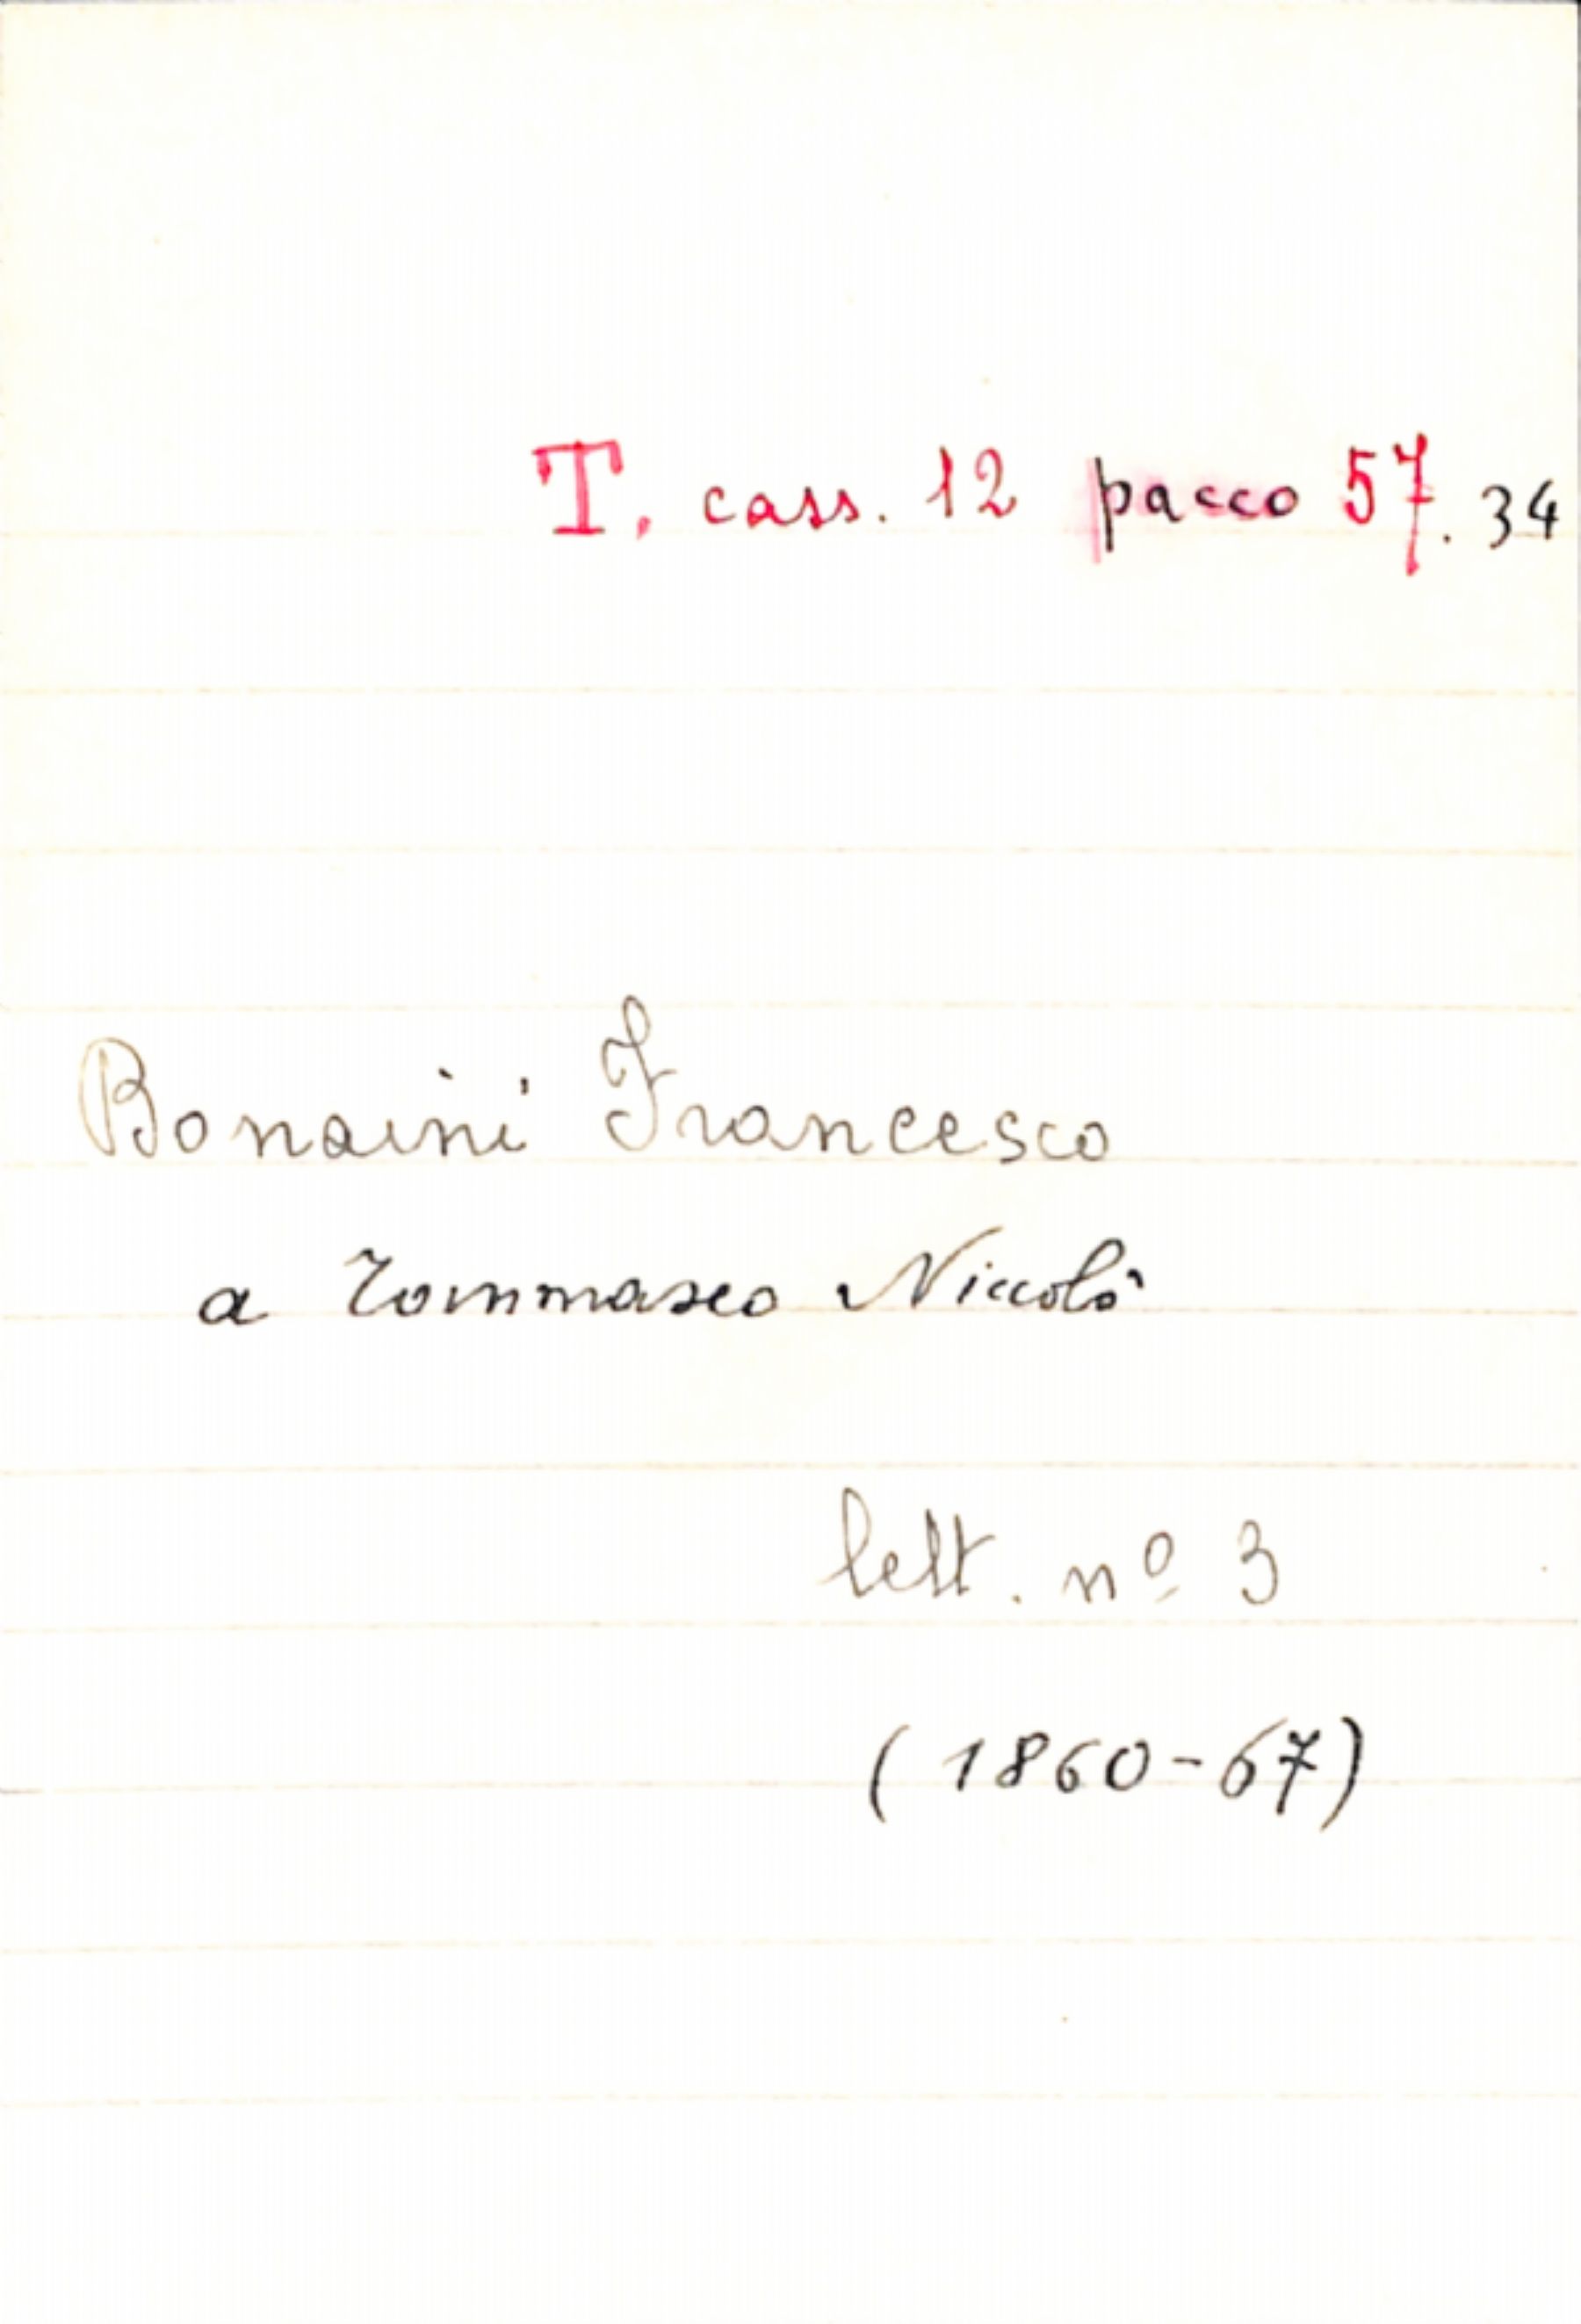 T. cass. 12 pacco 57. 34
Bonaini Francesco
a Tommaseo Niccolò
lett. nº 3
(1860-67)